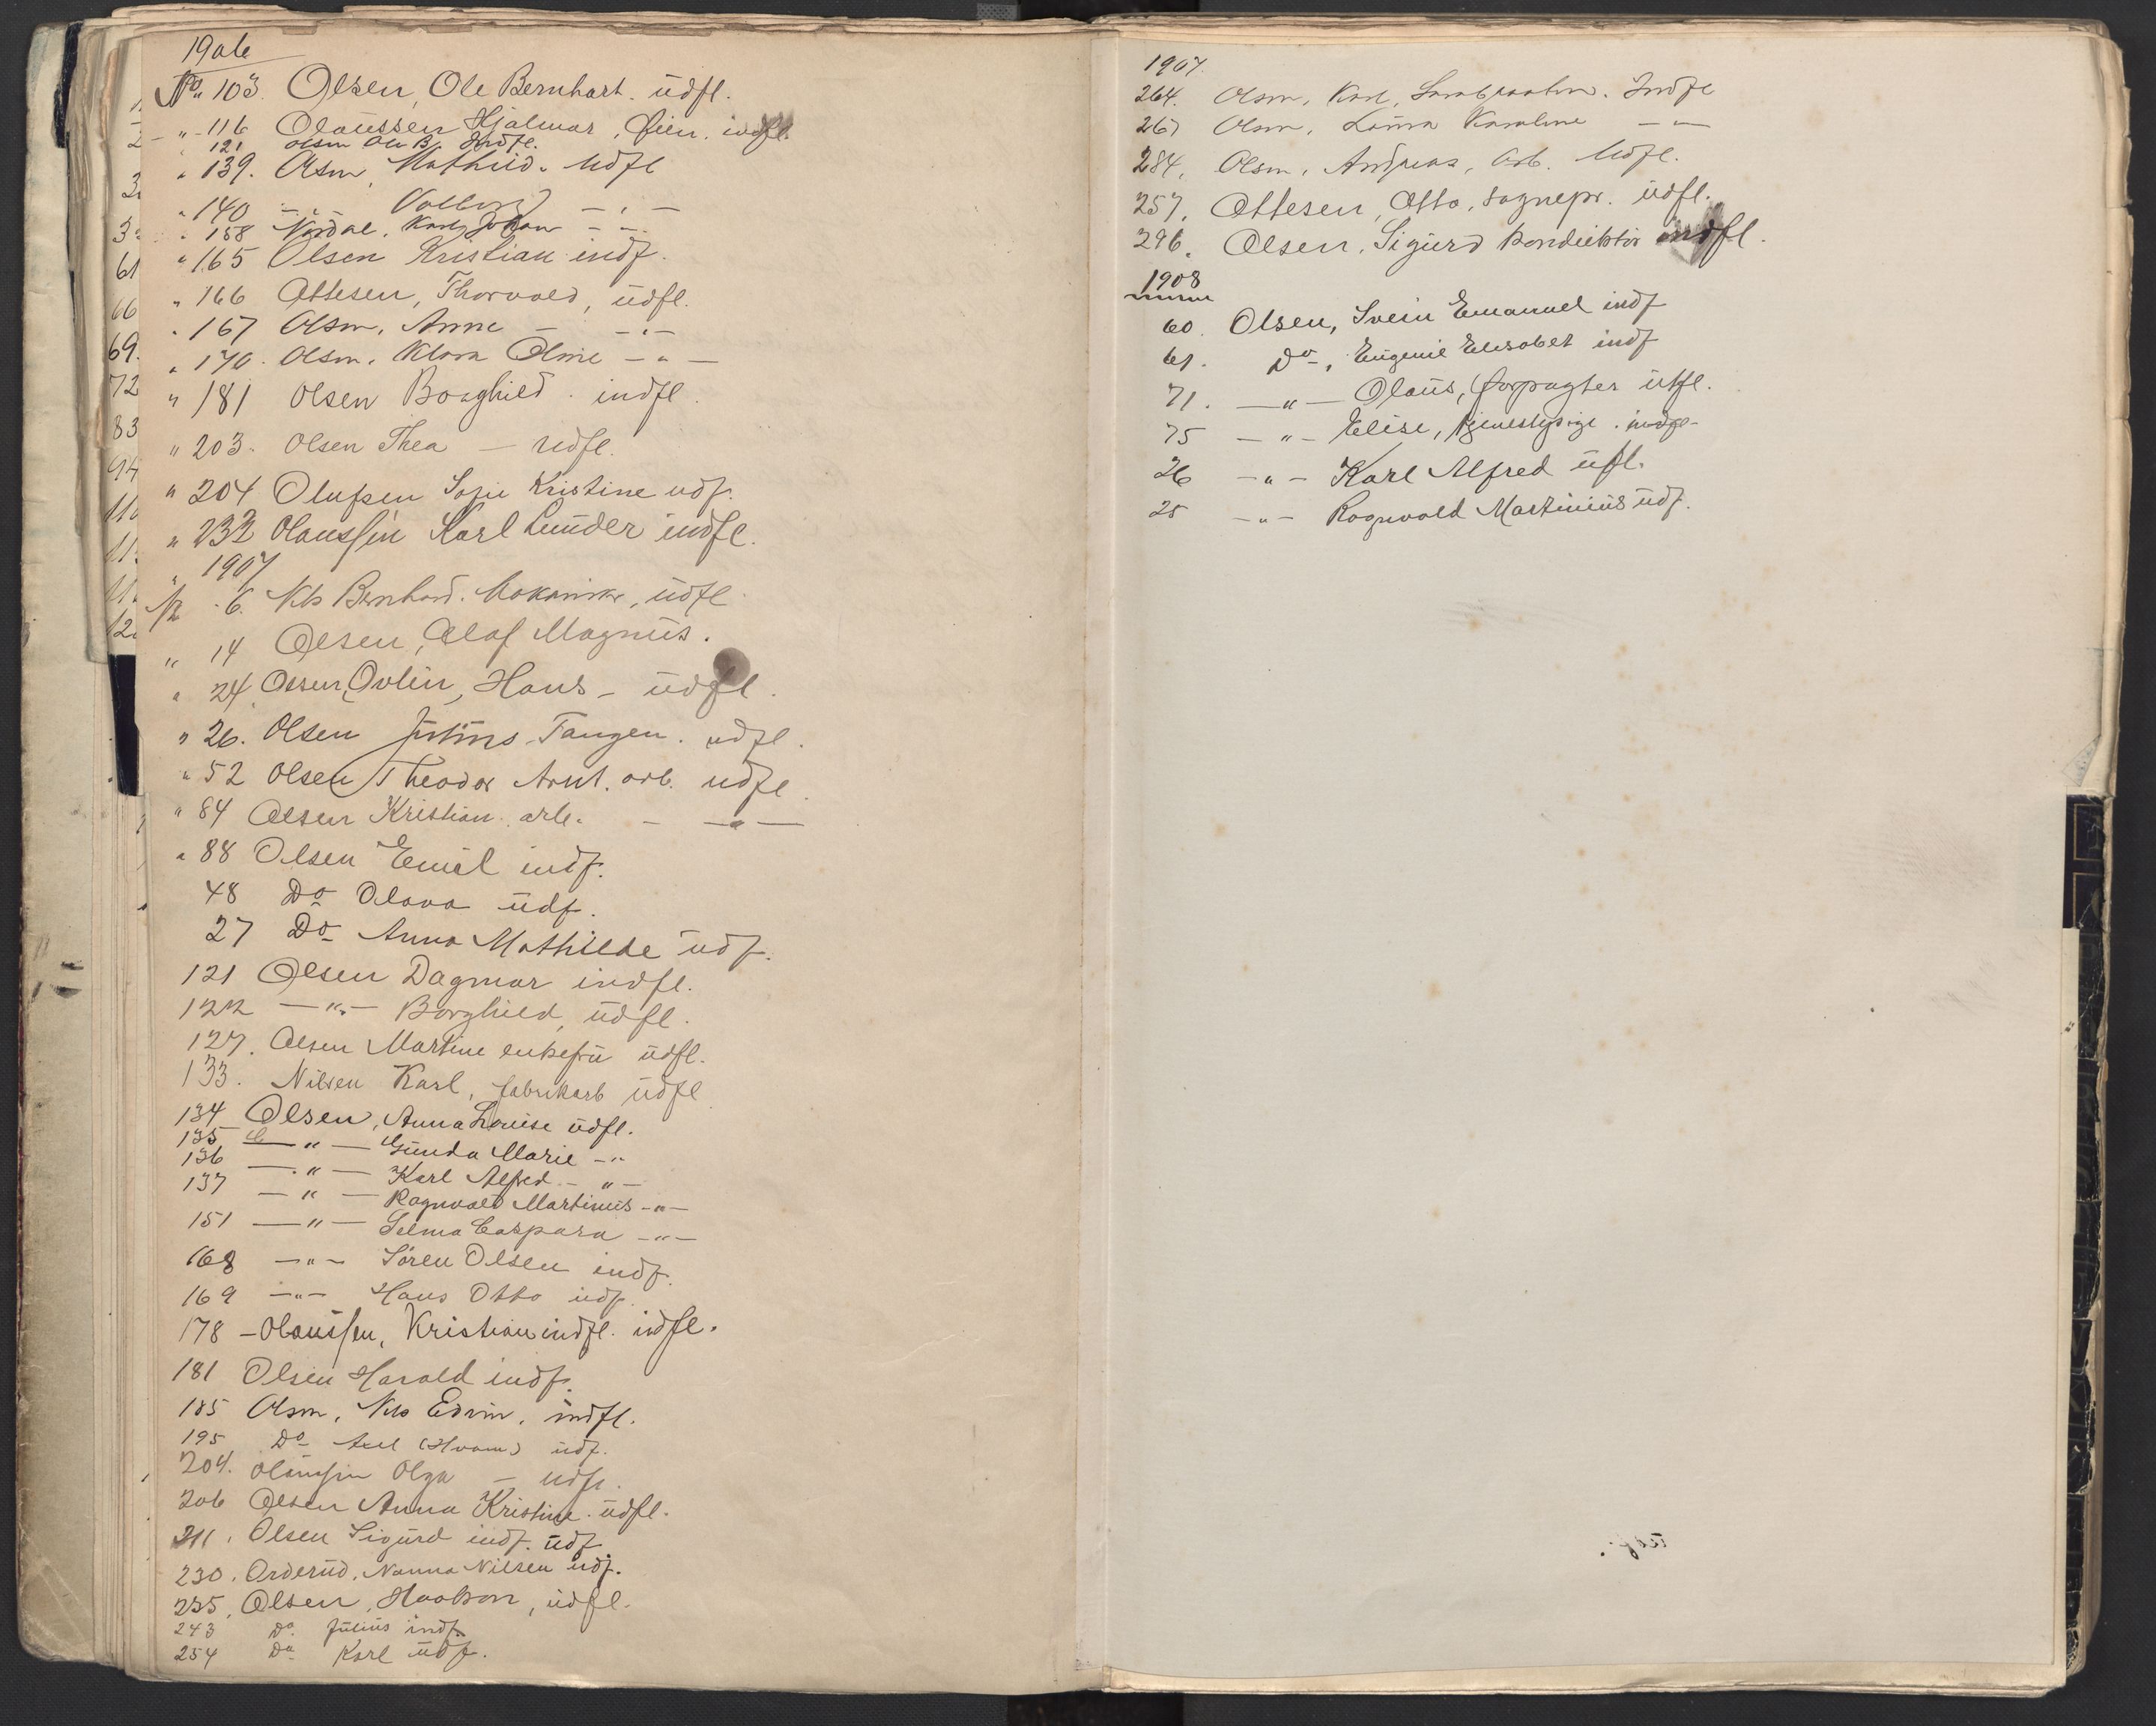 1906
No. 103 Olsen, Ole Bernhart. üdfl.
" - 116 Olaüssen Hjalmar, indfl.
" 121 Olsen Ole B. Indfl.
" 139. Olsen, Mathild. Udfl
" 140 - " - Valborg - " -
" 158 Nordal, Karl Johan - " -
" 165 Olsen Kristian indf.
" 166 Ottesen, Thorvald, üdfl.
" 167 Olsen, Anne - - " -
" 170. Olsen, Klara Oline - " -
" 181 Olsen Borghild. indfl.
" 203. Olsen Thea - Udfl.
" 204 Olufsen Sofie Kristine udf.
" 232 Olaussen Karl Lunder indfl.
" 1907
No. 6. Nils Bernhard. Mekaniker, üdfl
" 14 Olsen, Olaf Magnüs.
" 24 Olsen, Ovlin, Hans - üdfl.
" 26. Olsen Julius Tangen. udfl.
" 52 Olsen Theodor Arnt. arb. udfl.
" 84 Olsen Kristian. arb. - - " -
" 88 Olsen Emil indf.
48 Do Olava üdf.
27 Do Anna Mathilde üdf.
121 Olsen Dagmar indfl.
122 - " - Borghild, üdfl.
127. Olsen Martine enkefrü üdfl.
133. Nilsen Karl, fabrikarb üdfl
134 Olsen, Anna Louise üdfl.
135 - " - Günda Marie - "
136 - " - Karl Alfred - " -
137 - " - Ragnvald Martinüs - " -
151 - " - Selma Caspara - " -
168 - " - Sören Olsen indf.
169 - " - Hans Otto üdf.
178 - Olaussen, Kristian indfl. indfl.
181 Olsen Harald indf.
185 Olsen, Nils Edvin. indfl.
195 Do Axel (Hvam) üdf.
204. Olaussen Olga - udfl.
206 Olsen Anna Kristine. üdfl.
211. Olsen Sigurd indf. üdf.
230. Orderüd, Nanna Nilsen üdf.
235, Olsen, Haakon, üdfl.
243 Do. Jülius indf.
254 Do Karl üdf.
1907.
264. Olsen, Karl, Indfl
267 Olsen, Laura Karoline - " -
284, Olsen, Andreas, Arb. Udfl.
257, Ottesen, Otto, sognepr. üdfl.
296. Olsen, Sigürd Kondüktör indfl.
1908
60. Olsen, Svein Emanuel indf
61. Do, Eügenie Elisabet indf
71. - " - Olaüs, forpagter üdfl.
75 - " - Elise, tjenestepige. indfl-
26 - " - Karl Alfred üfl.
25 - " - Ragnvald Martiniüs üdf.